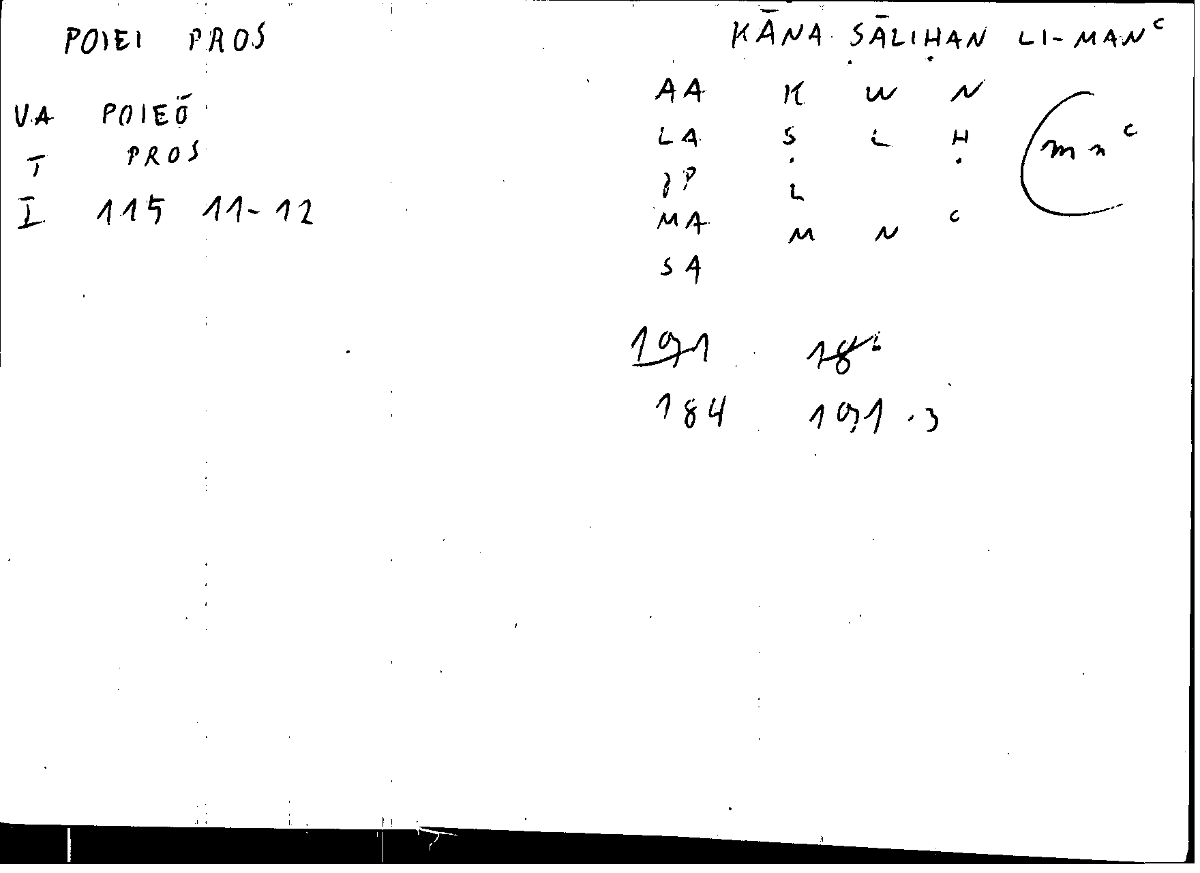 POIEI PROS
VA POIEŌ
T PROS
I 115 11-12
KĀNA ṢĀLIḤAN LI-MANᶜ
AA K W N
LA Ṣ L Ḥ
L
MA M N ᶜ
SA
m n ᶜ
191
184 191.3